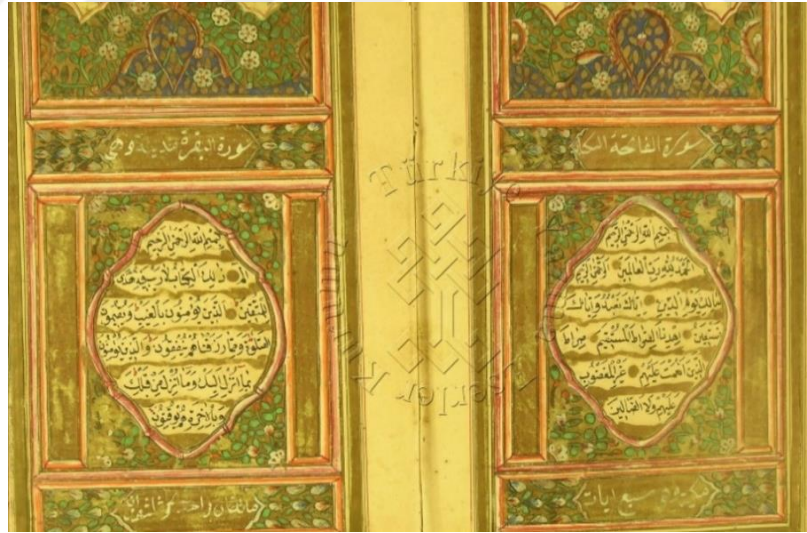 سورة الفاتحة
بسم الله الرحمن الرحيم
الحمد لله رب العالمين الرحمن الرحيم
مالك يوم الدين اياك نعبد واياك
نستعين اهدنا الصراط المستقيم صراط
الذين انعمت عليهم غير المغضوب
عليهم ولا الضالين
مكية وهي سبع ايات
سورة البقرة مدنية وهي
بسم الله الرحمن الرحيم
الم ذلك الكتاب لا ريب فيه هدى
للمتقين الذين يؤمنون بالغيب ويقيمون
الصلوة ومما رزقناهم ينفقون والذين يؤمنون
بما انزل اليك وما انزل من قبلك
وبالاخرة هم يوقنون
مائتان
Türkiye Yazma Eserler Kurumu